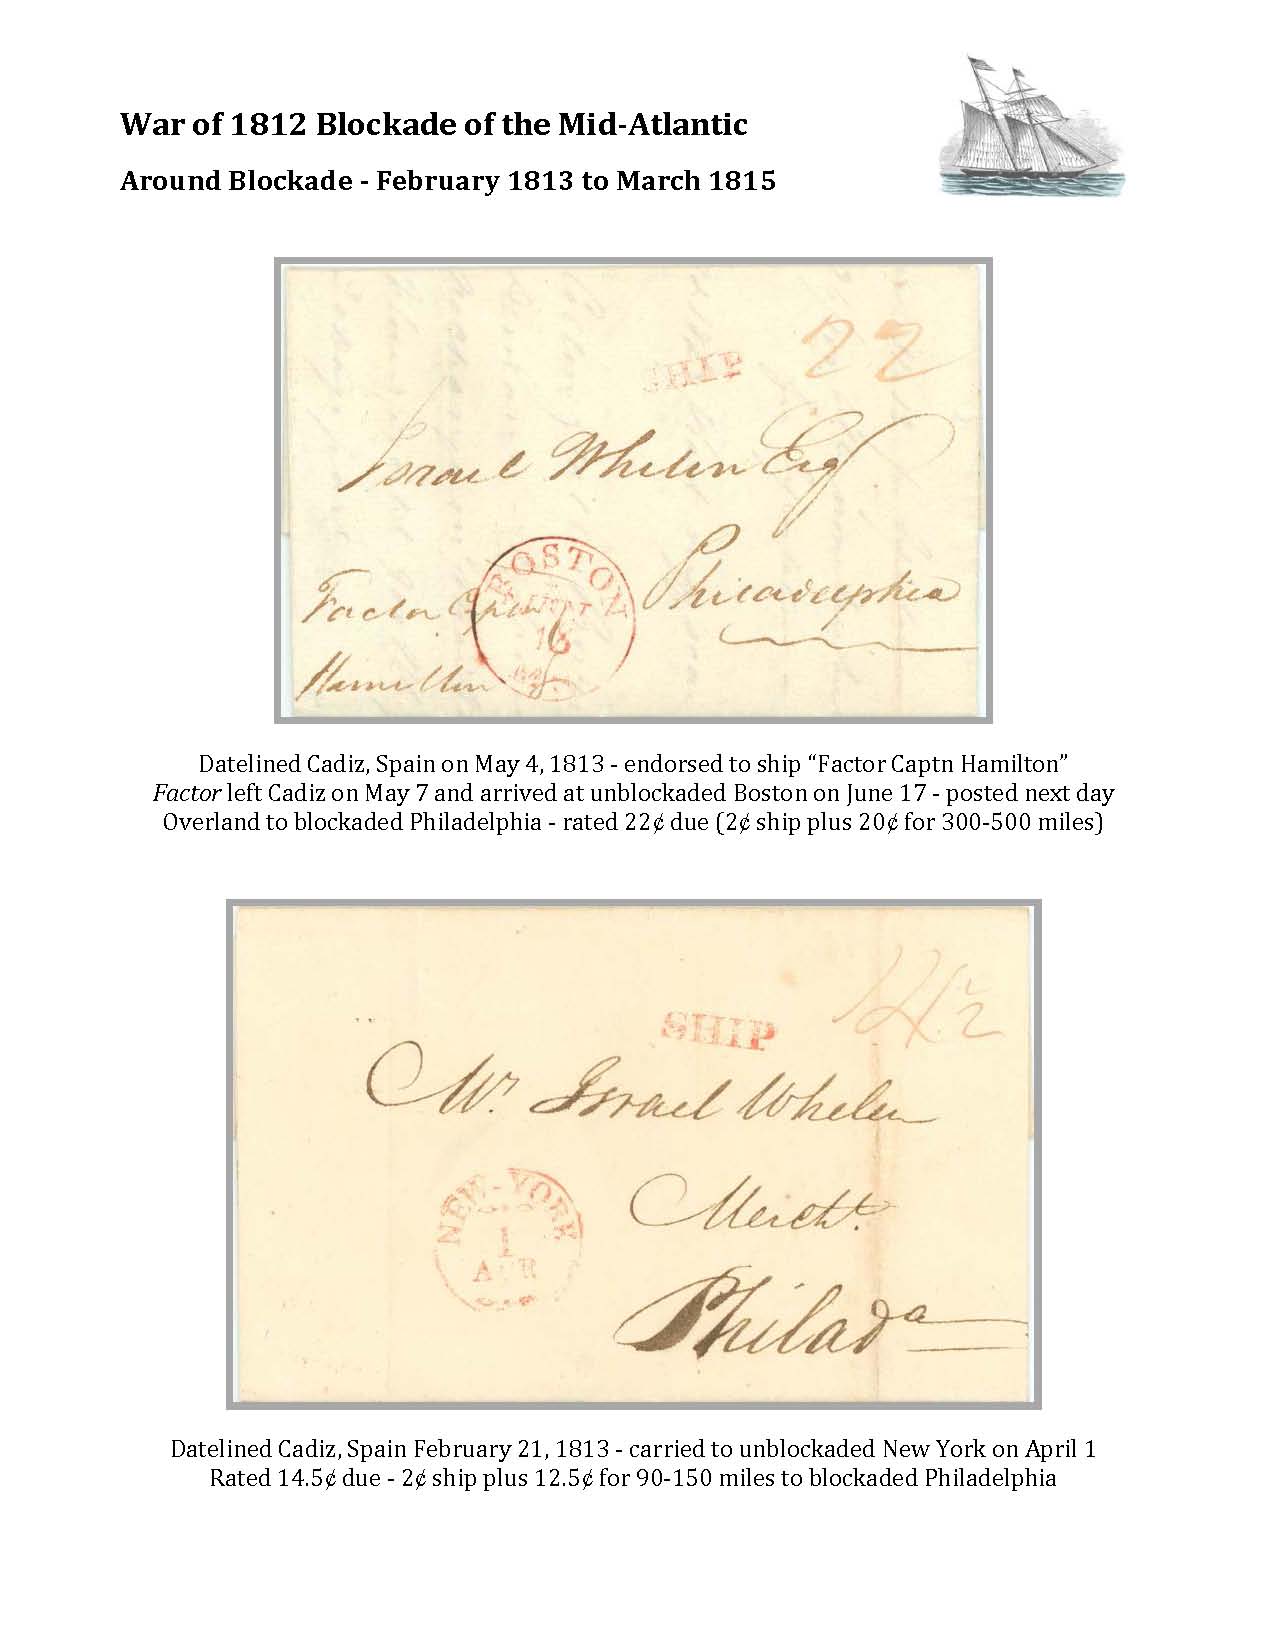 War of 1812 Blockade of the Mid-Atlantic
Around Blockade - February 1813 to March 1815
SHIP 22
Israel Whelen Esq
Philadelphia
BOSTON
Factor Captn
Hamilton
Datelined Cadiz, Spain on May 4, 1813 - endorsed to ship “Factor Captn Hamilton”
Factor left Cadiz on May 7 and arrived at unblockaded Boston on June 17 - posted next day
Overland to blockaded Philadelphia - rated 22¢ due (2¢ ship plus 20¢ for 300-500 miles)
SHIP
Mr. Israel Whelen
Mercht.
Philada
NEW-YORK
1
APR
Datelined Cadiz, Spain February 21, 1813 - carried to unblockaded New York on April 1
Rated 14.5¢ due - 2¢ ship plus 12.5¢ for 90-150 miles to blockaded Philadelphia